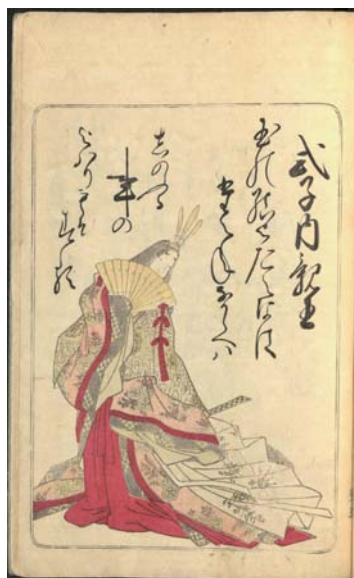 式子内親王
玉の緒よたえなは
たえねなからへハ
志のふる
事の
よハりもそ
する